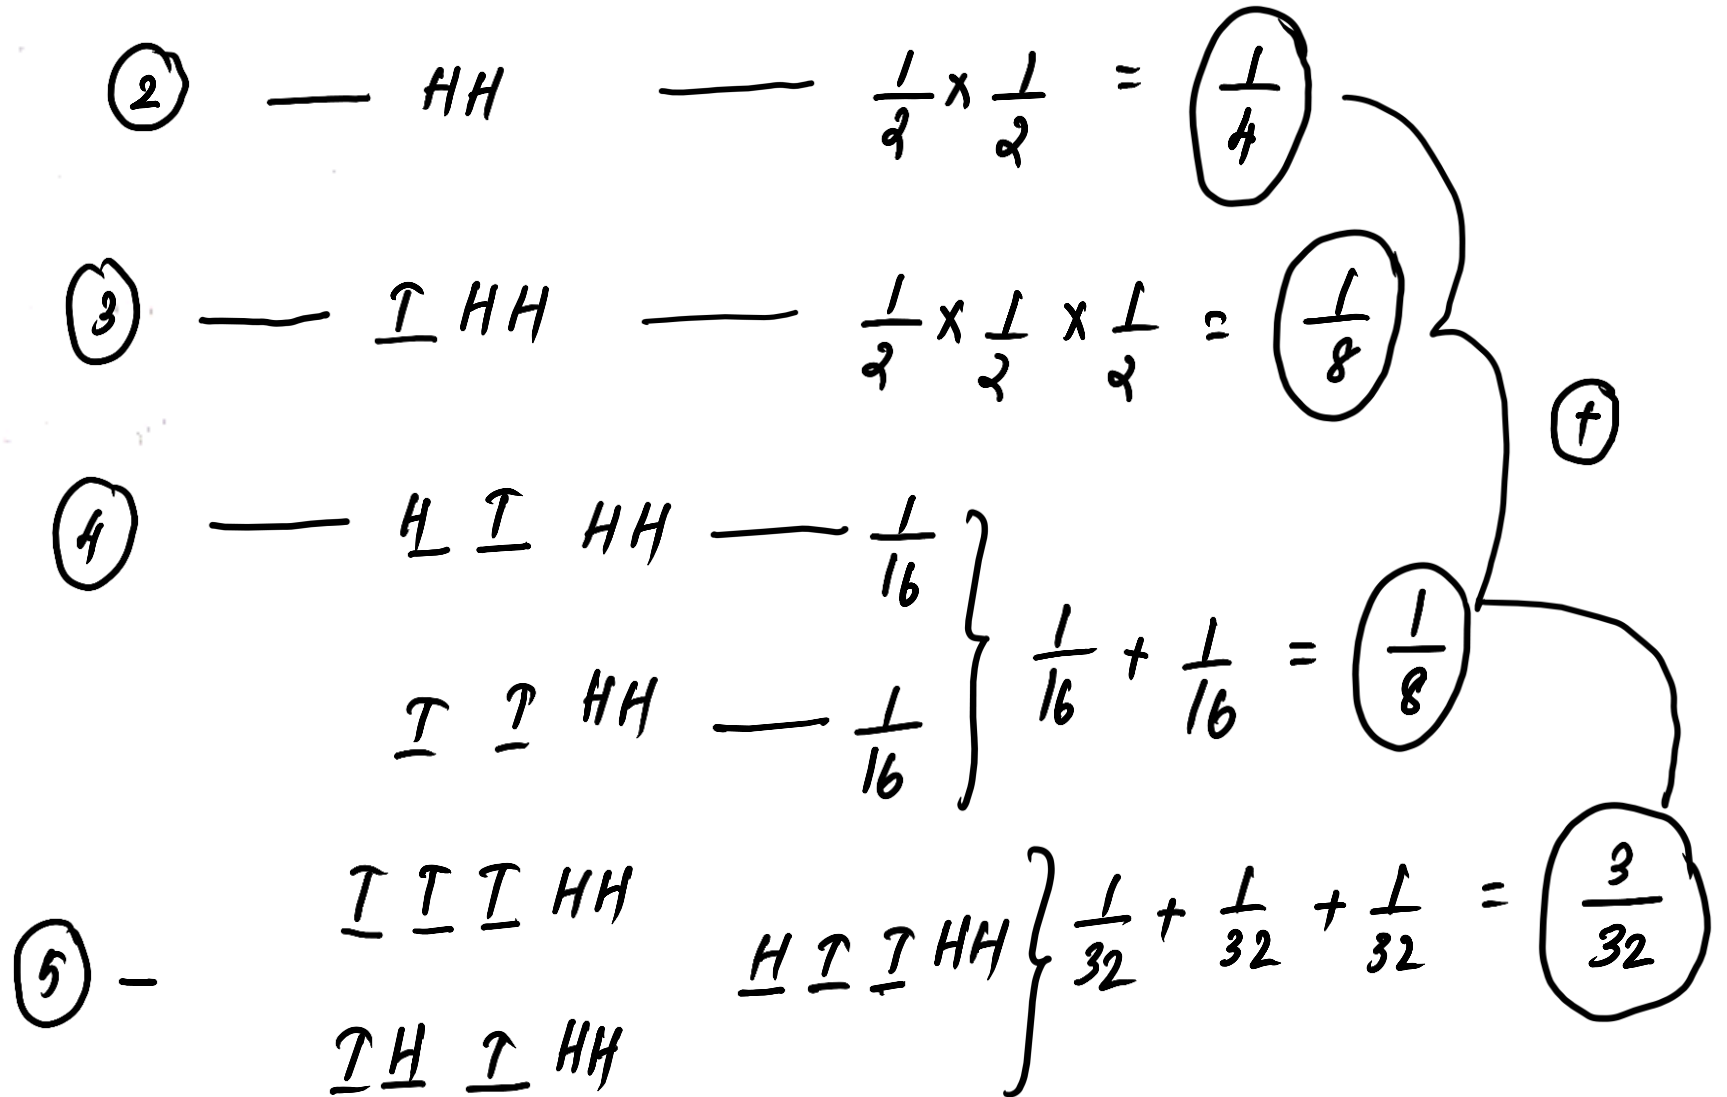 ② — HH — 1/2 × 1/2 = 1/4
③ — T HH — 1/2 × 1/2 × 1/2 = 1/8
+
④ — H T HH — 1/16
T T HH — 1/16
1/16 + 1/16 = 1/8
⑤ - T T T HH
H T T HH
T H T HH
1/32 + 1/32 + 1/32 = 3/32